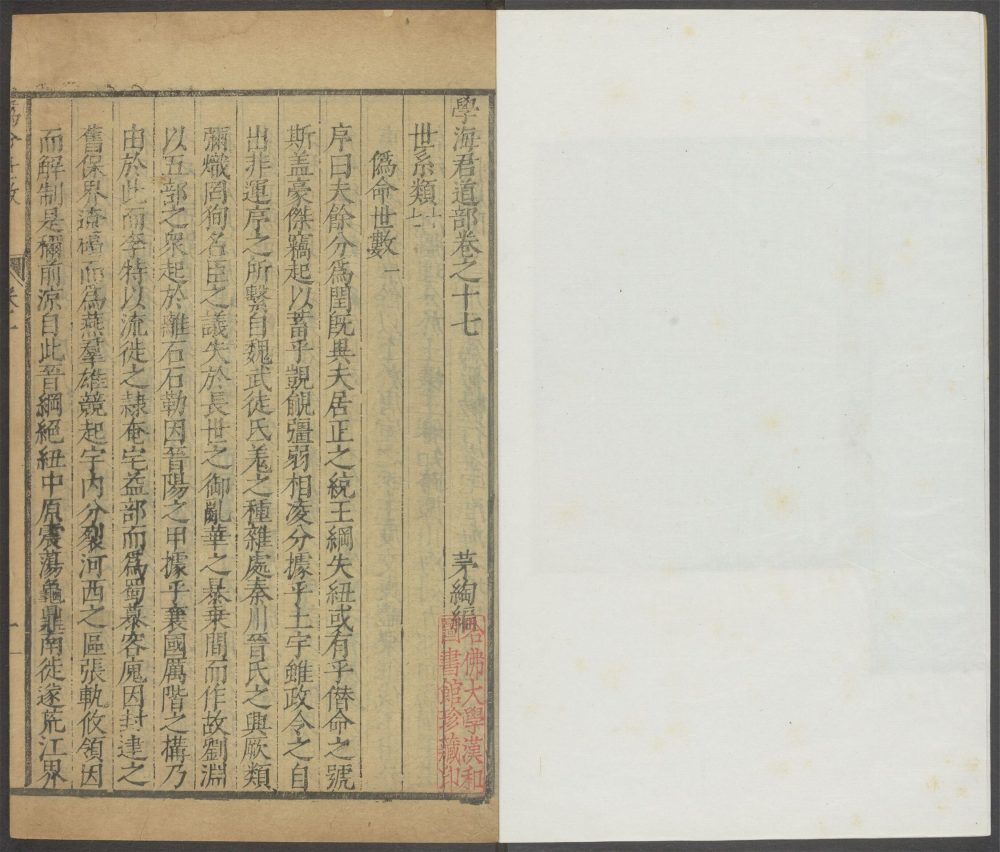 學海君道部卷之十七
茅綯編
哈佛大學漢和
圖書館珍藏印
世系類
僞命世數一
序曰夫餘分爲閏旣異夫居正之統王綱失紐或有乎僭命之號
斯盖豪傑竊起以蓄乎覬覦彊弱相凌分據乎土宇雖政令之自
出非運序之所繫自魏武徒氐羌之種雜處秦川晉氏之興厥類
彌熾罔徇名臣之議失於長世之御亂華之暴乗間而作故劉淵
以五部之衆起於離石石勒因晉陽之甲據乎襄國厲階之構乃
由於此而李特以流徙之隷奄宅益部而爲蜀慕容廆因封建之
舊保界遼碣而爲燕羣雄競起宇內分裂河西之區張軌攸領因
而解制是稱前凉自此晉綱絕紐中原震蕩龜鼎南徙遂荒江界